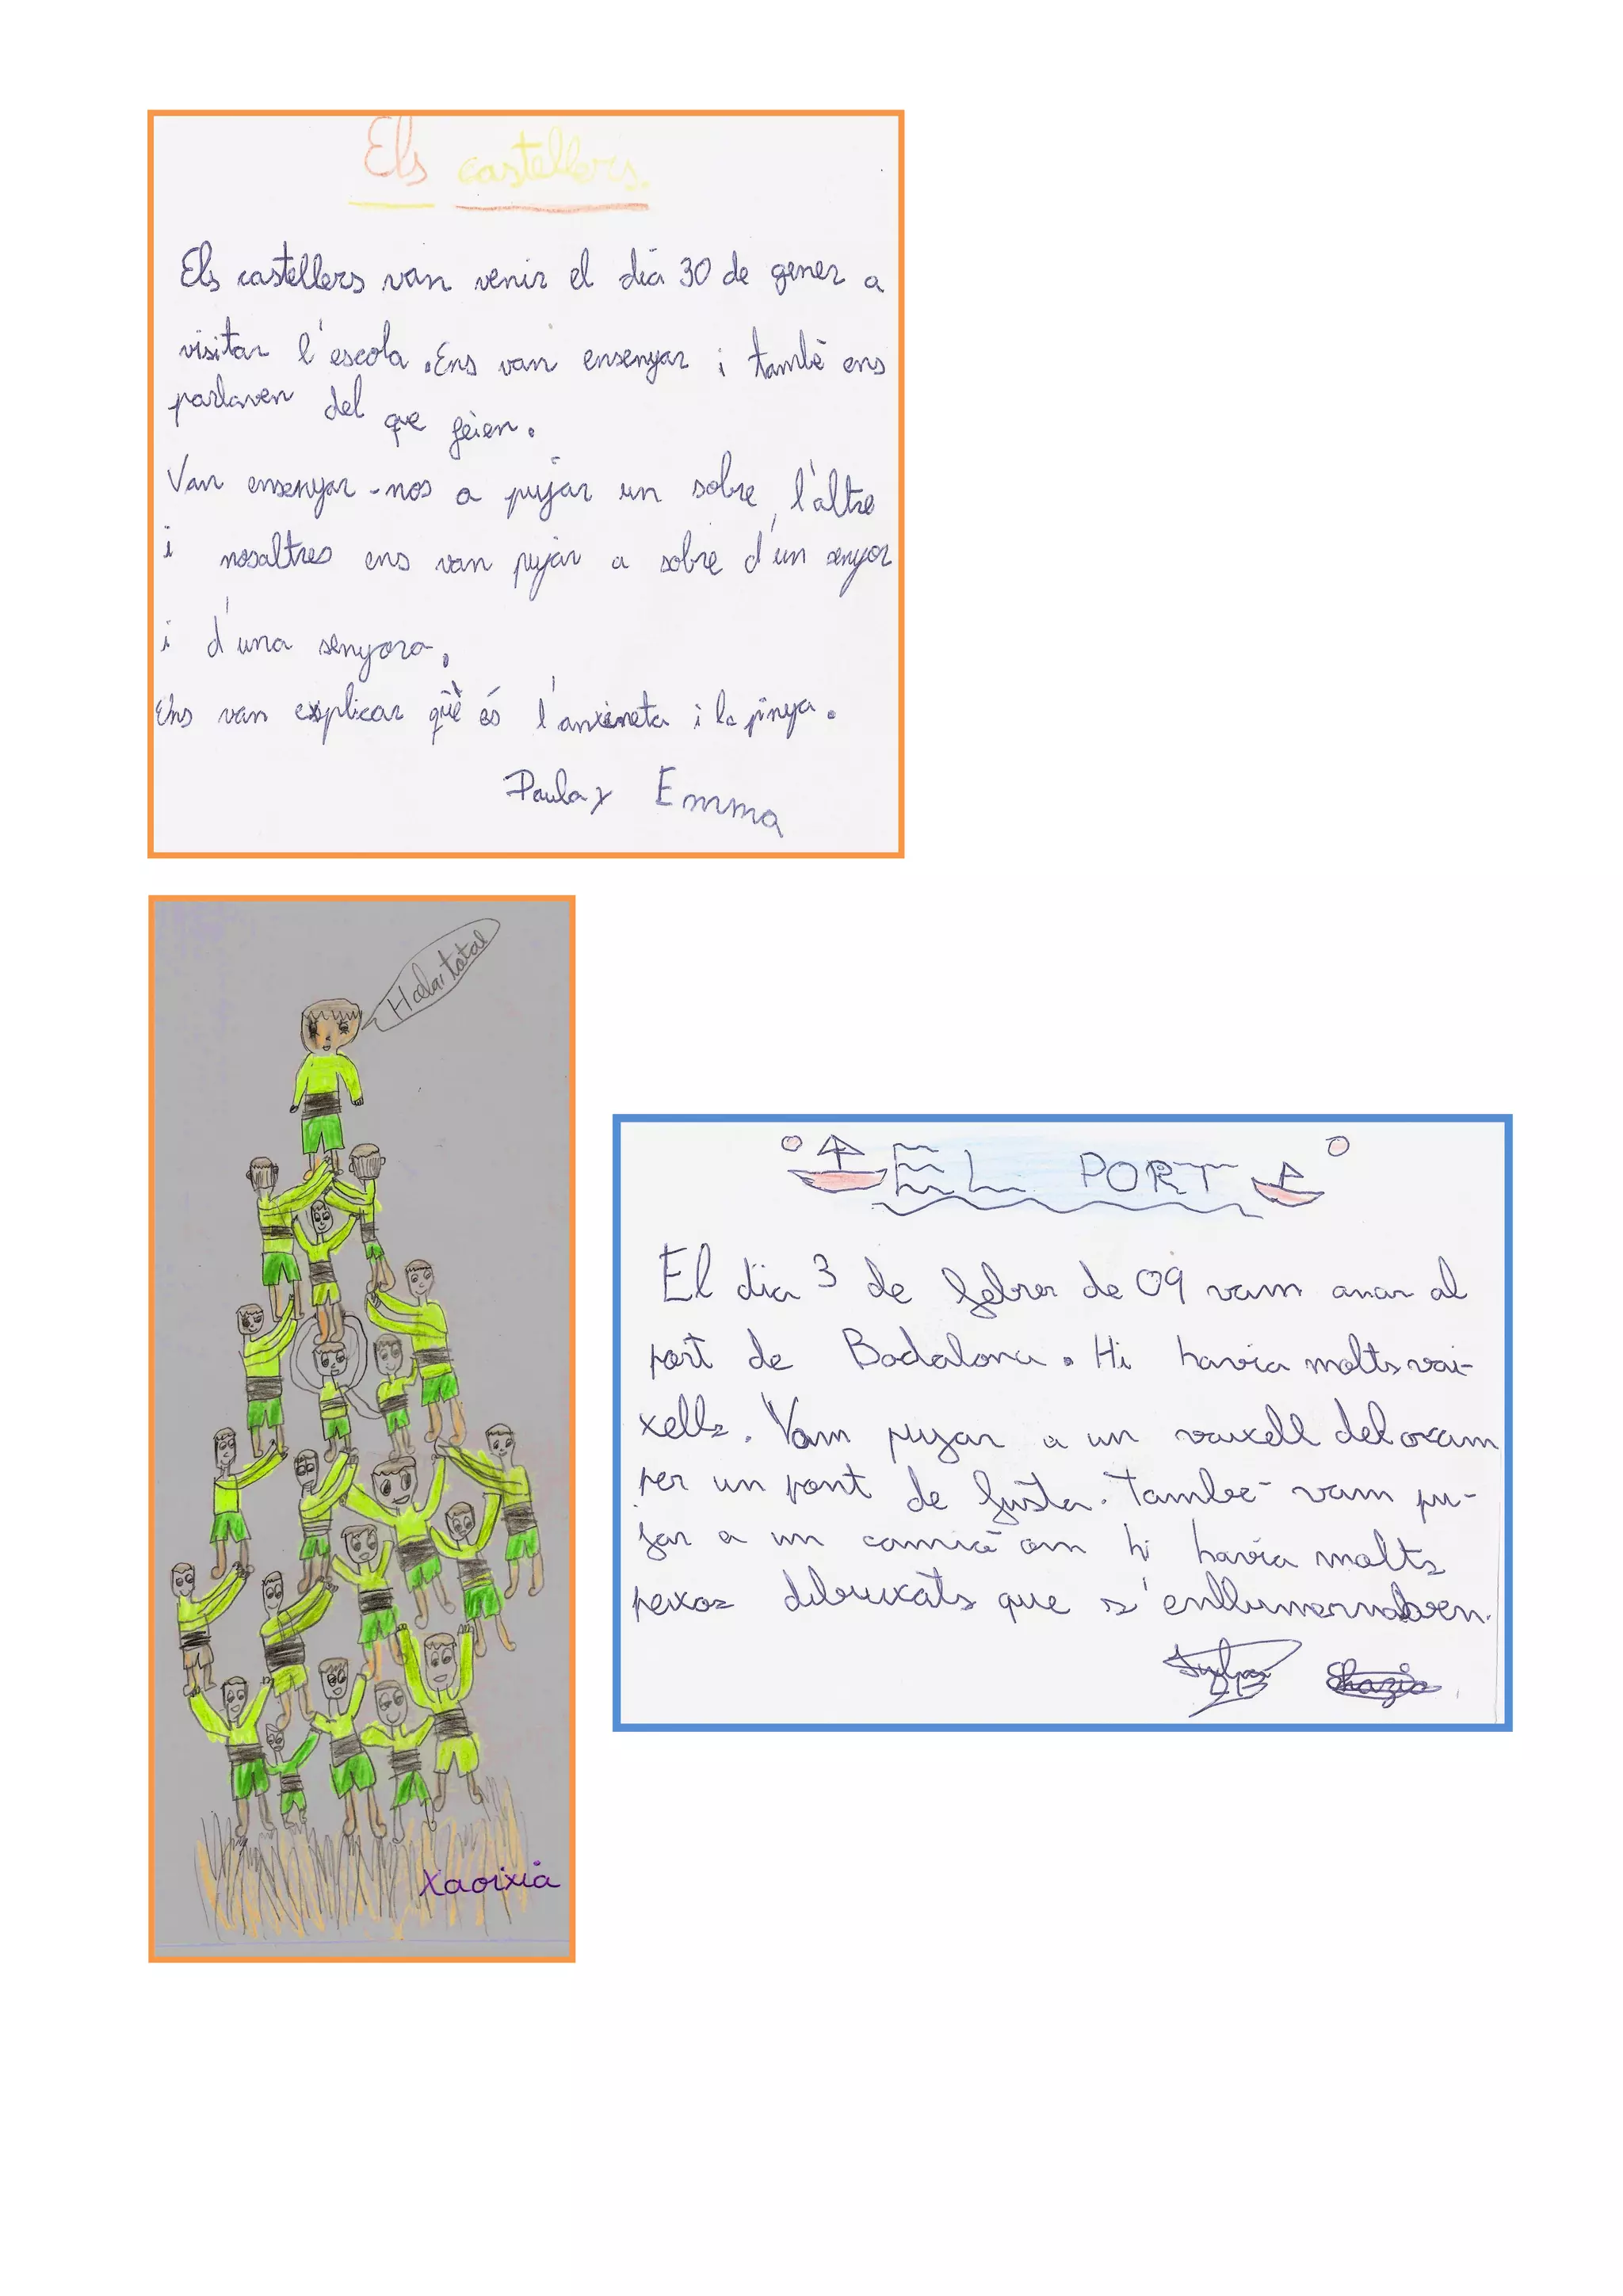 Els castellers
Els castellers van venir el dia 30 de gener a
visitar l'escola. Ens van ensenyar i també ens
parlaven del que feien.
Van ensenyar-nos a pujar un sobre l'altre
i nosaltres ens van pujar a sobre d'un senyor
i d'una senyora.
Ens van explicar què és l'anxeneta i la pinya.
Paula y Emma
Xaoixia
EL PORT
El dia 3 de febrer de 09 vam anar al
port de Badalona. Hi havia molts vai-
xells. Vam pujar a un vaixell del
per un pont de fusta. També vam pu-
jar a un camió om hi havia molts
peixos dibuixats que s'enllumernaven.